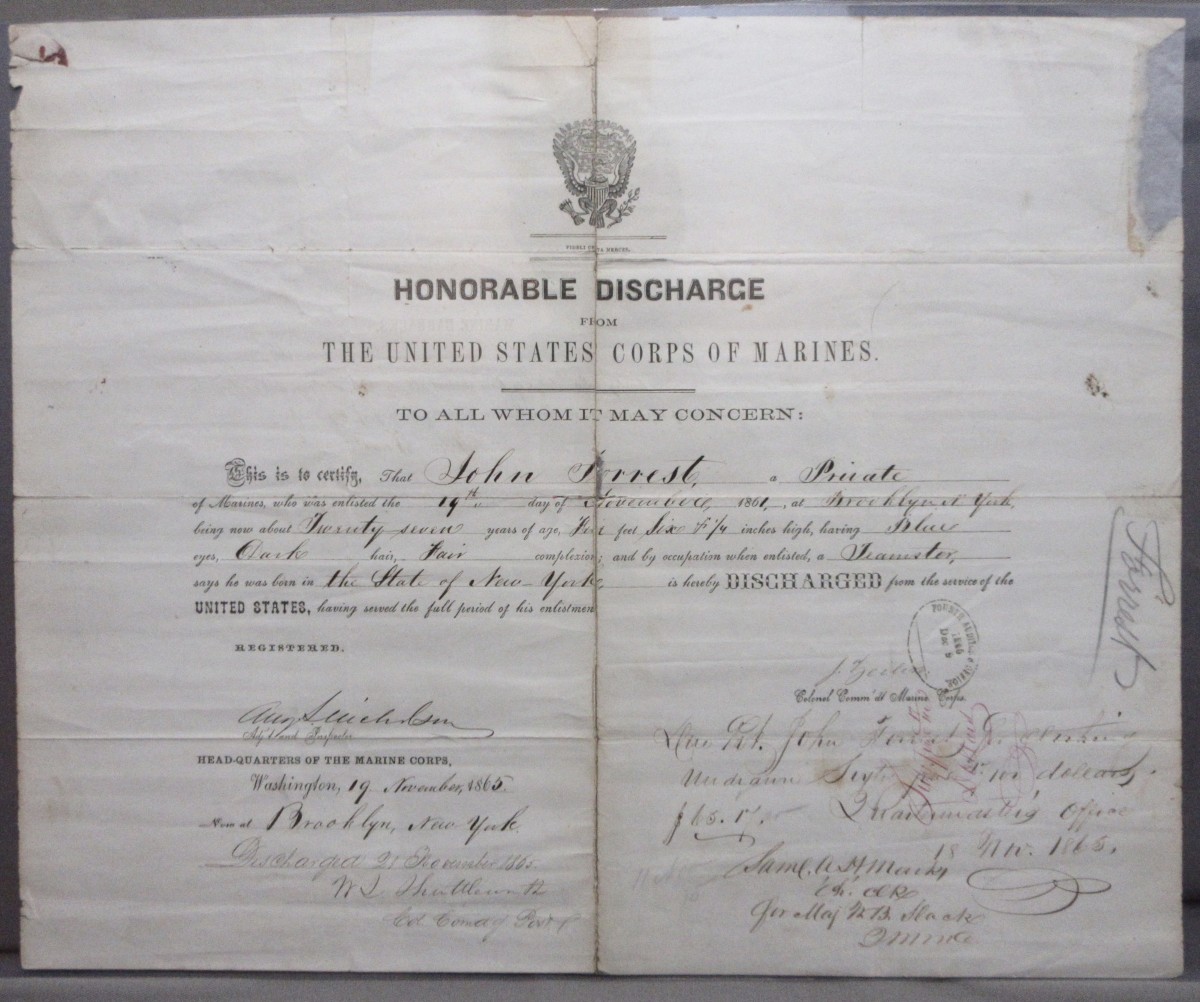 HONORABLE DISCHARGE
FROM
THE UNITED STATES CORPS OF MARINES.
TO ALL WHOM IT MAY CONCERN:
This is to certify, That John Forrest, a Private
of Marines, who was enlisted the 19th day of November, 1861, at Brooklyn N. York,
being now about Twenty seven years of age, feet Six inches high, having Blue
eyes, Dark hair, Fair complexion; and by occupation when enlisted, a Teamster,
says he was born in the State of New-York, is hereby DISCHARGED from the service of the
UNITED STATES, having served the full period of his enlistment
REGISTERED.
Forrest
J. Zeilin
Colonel Comm'dt Marine Corps.
Aug S Nicholson
Adj't and Inspector
HEAD-QUARTERS OF THE MARINE CORPS,
Washington, 19 November, 1865.
Now at Brooklyn, New York.
Discharged 21 November 1865
Col Comdg Post
Due Pvt. John Forrest for clothing
undrawn dollars,
$65.
Quartermaster's Office
18 Nov. 1865.
Saml. A.
Clk.
for Maj W B. Slack